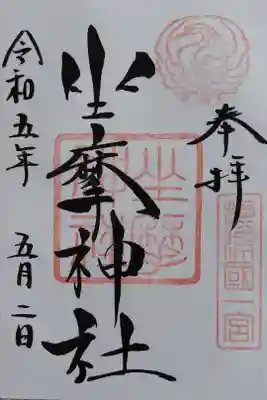 奉拝
摂津國一宮
坐摩神社
令和五年 五月二日